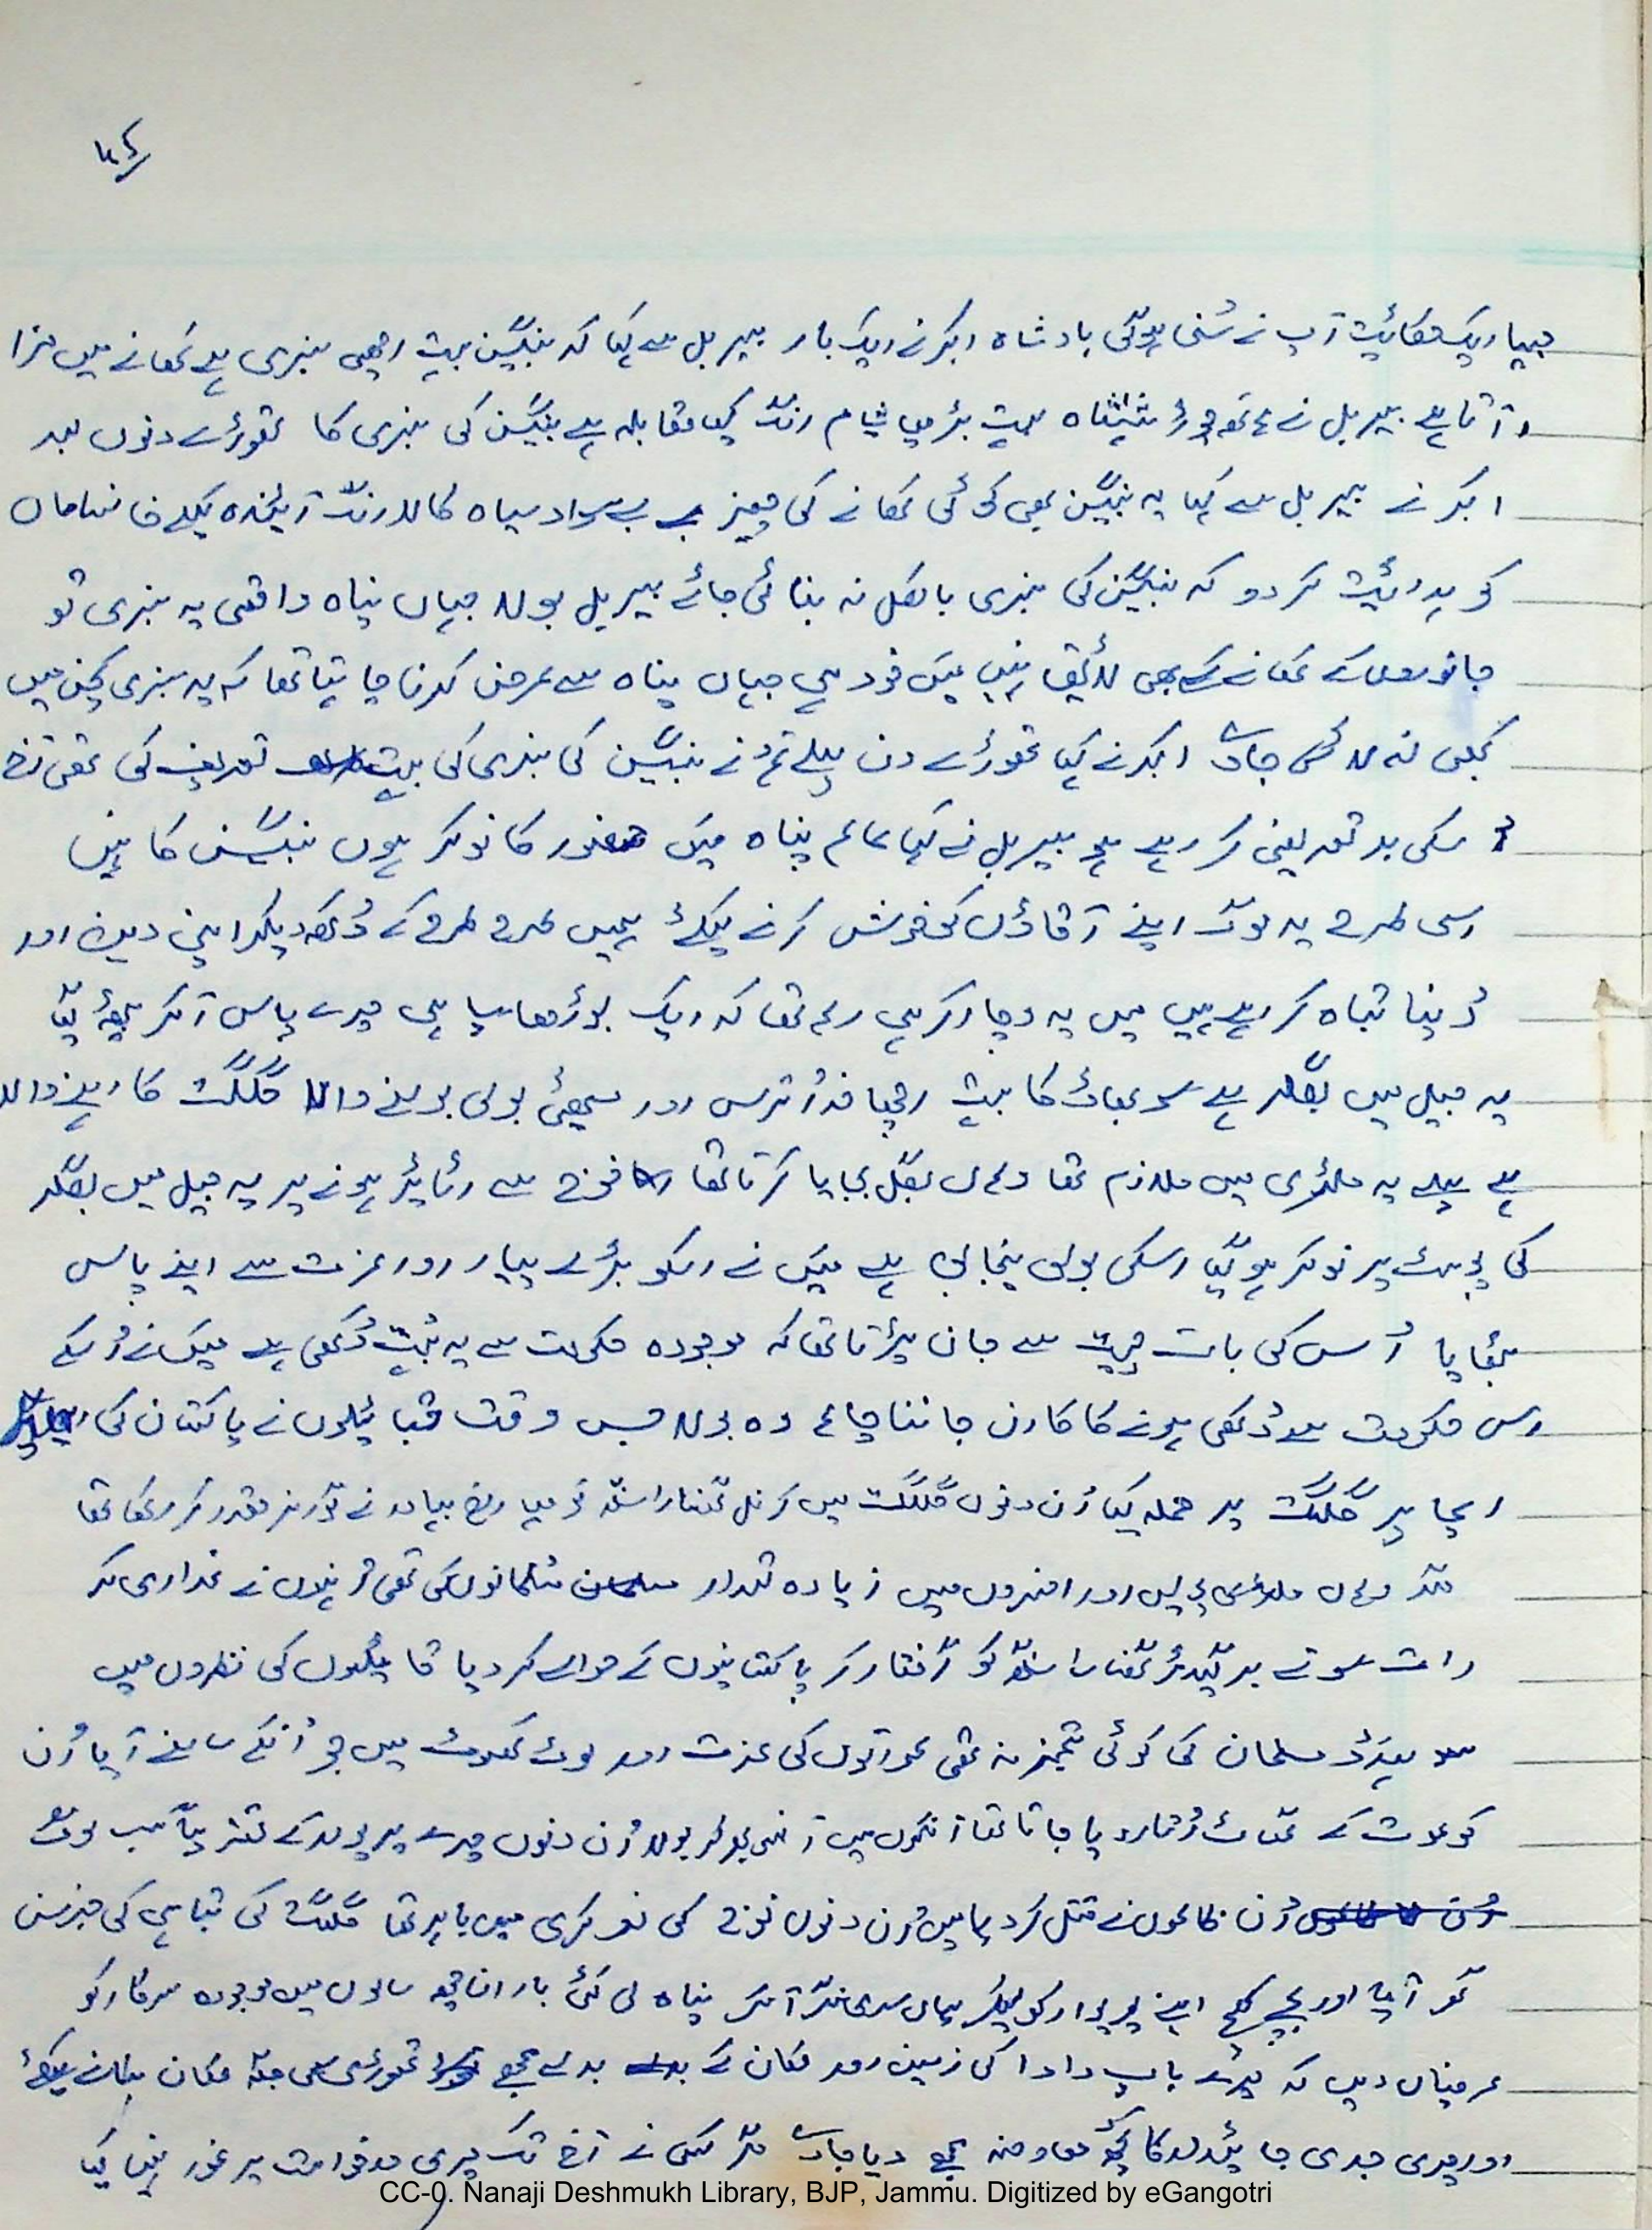 جیسا ایک حکائیت آپ نے سُنی ہوگی بادشاہ اکبر نے ایک بار بیربل سے کہا کہ بینگن بہت اچھی سبزی ہے کھانے میں مزا
آتا ہے بیربل نے شہنشاہ بہت بڑھیا شیام رنگ کیا مقابلہ ہے بینگن کی سبزی کا تھوڑے دنوں بعد
اکبر نے بیربل سے کہا یہ بینگن بھی کوئی کھانے کی چیز ہے بے سواد سیاہ کالا رنگ آئیندہ کیلئے خانساماں
کو ہدائیت کر دو کہ بینگن کی سبزی بالکل نہ بنائی جائے بیربل بولا جہاں پناہ واقعی یہ سبزی تو
جانوروں کے کھانے کے بھی لائیق نہیں میں خود ہی جہاں پناہ سے عرض کرنا چاہتا تھا کہ یہ سبزی کچن میں
کبھی نہ لائی جاوے اکبر نے کہا تھوڑے دن پہلے تم نے بینگن کی سبزی کی بہت تعریف کی تھی آج
اسکی بد تعریفی کر رہے ہو بیربل نے کہا عالم پناہ میں حضور کا نوکر ہوں بینگن کا نہیں
اسی طرح یہ لوگ اپنے آقاؤں کو خوش کرنے کیلئے ہمیں طرح طرح کے دُکھ دیکر اپنی دین اور
دُنیا تباہ کر رہے ہیں میں یہ وچار کر ہی رہا تھا کہ ایک بوڑھا سپاہی میرے پاس آکر بیٹھ گیا
یہ جیل میں بگلر ہے سوبھاؤ کا بہت اچھا خدا ترس اور میٹھی بولی بولنے والا گلگت کا رہنے والا
ہے پہلے یہ ملٹری میں ملازم تھا وہاں بگل بجایا کرتا تھا فوج سے رٹائیر ہونے پر یہ جیل میں بگلر
کی پوسٹ پر نوکر ہو گیا اسکی بولی پنجابی ہے میں نے اسکو بڑے پیار اور عزت سے اپنے پاس
بٹھایا اُس کی بات چیت سے جان پڑتا تھا کہ موجودہ حکومت سے یہ بہت دُکھی ہے میں نے اُسکے
اس حکومت سے دُکھی ہونے کا کارن جاننا چاہا وہ بولا جس وقت قبائیلوں نے پاکستان کی
ایما پر گلگت پر حملہ کیا اُن دنوں گلگت میں کرنل گھنسارا سنگھ کو مہاراجہ بہادر نے گورنر مقرر کر رکھا تھا
مگر وہاں ملٹری پولیس اور افسروں میں زیادہ تعداد مسلمانوں کی تھی اُنہوں نے غداری کر
رات سوتے برگیڈیر گھنسارا سنگھ کو گرفتار کر پاکستانیوں کے حوالے کر دیا قبائیلیوں کی نظروں میں
ہندو مسلمان کی کوئی تمیز نہ تھی عورتوں کی عزت اور لوٹ کھسوٹ میں جو اُنکے سامنے آیا اُن
کو موت کے گھاٹ اُتار دیا جاتا تھا آنکھوں میں آنسو بھر کر بولا اُن دنوں میرے پریوار کے قریباً سب لوگ
اُن ظالموں نے قتل کر دیا میں اُن دنوں فوج کی نوکری میں باہر تھا گلگت کی تباہی کی خبر سن
گھر آیا اور بچے کھچے اپنے پریوار کو لیکر یہاں سرینگر آکر پناہ لی کئی بار ان چھ سالوں میں موجودہ سرکار کو
عرضیاں دیں کہ میرے باپ دادا کی زمین اور مکان کے بدلے مجھے تھوڑی سی جگہ مکان بنانے کیلئے
اور میری جدی جائیداد کا کچھ معاوضہ مجھے دیا جاوے مگر کسی نے آج تک میری درخواست پر غور نہیں کیا
CC-0. Nanaji Deshmukh Library, BJP, Jammu. Digitized by eGangotri